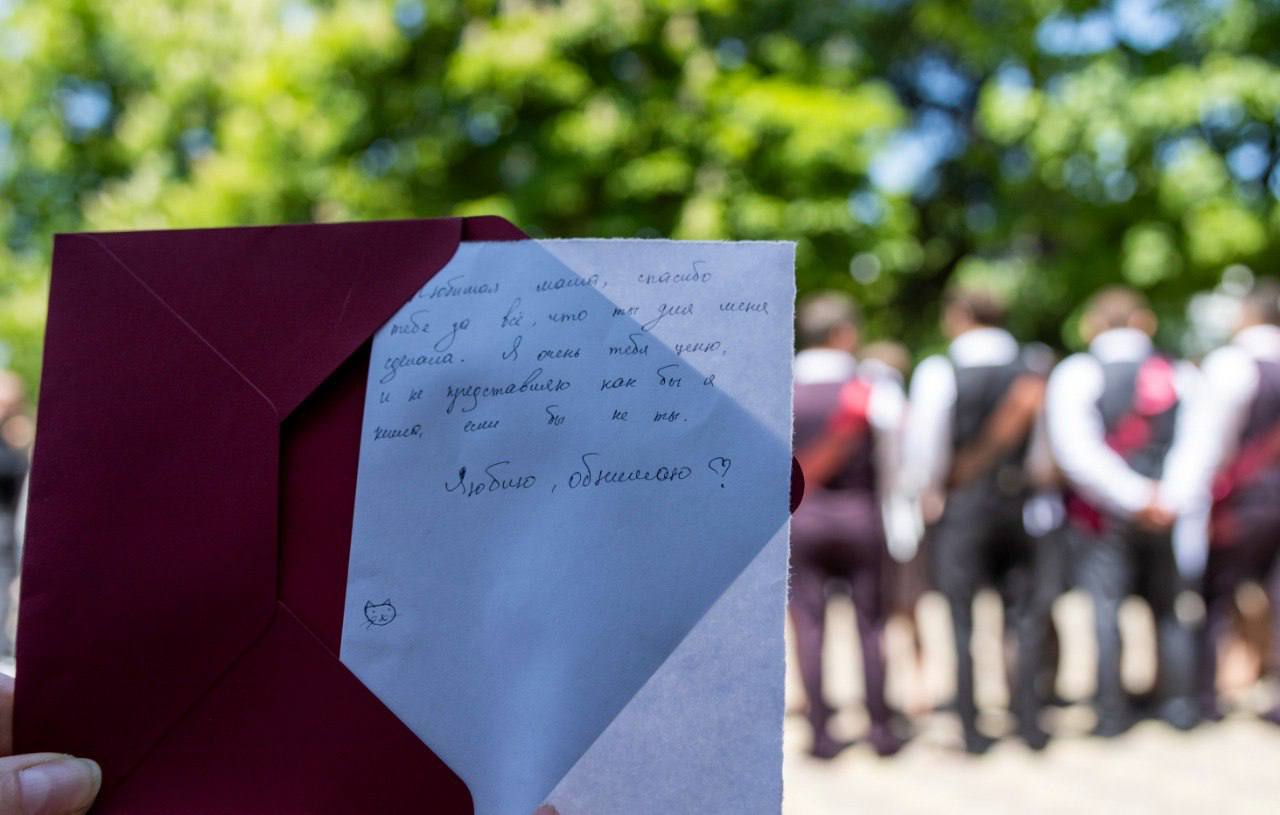 Любимая мама, спасибо
тебе за всё, что ты для меня
сделала. Я очень тебя ценю,
и не представляю как бы я
жила, если бы не ты.
Люблю, обнимаю ♡